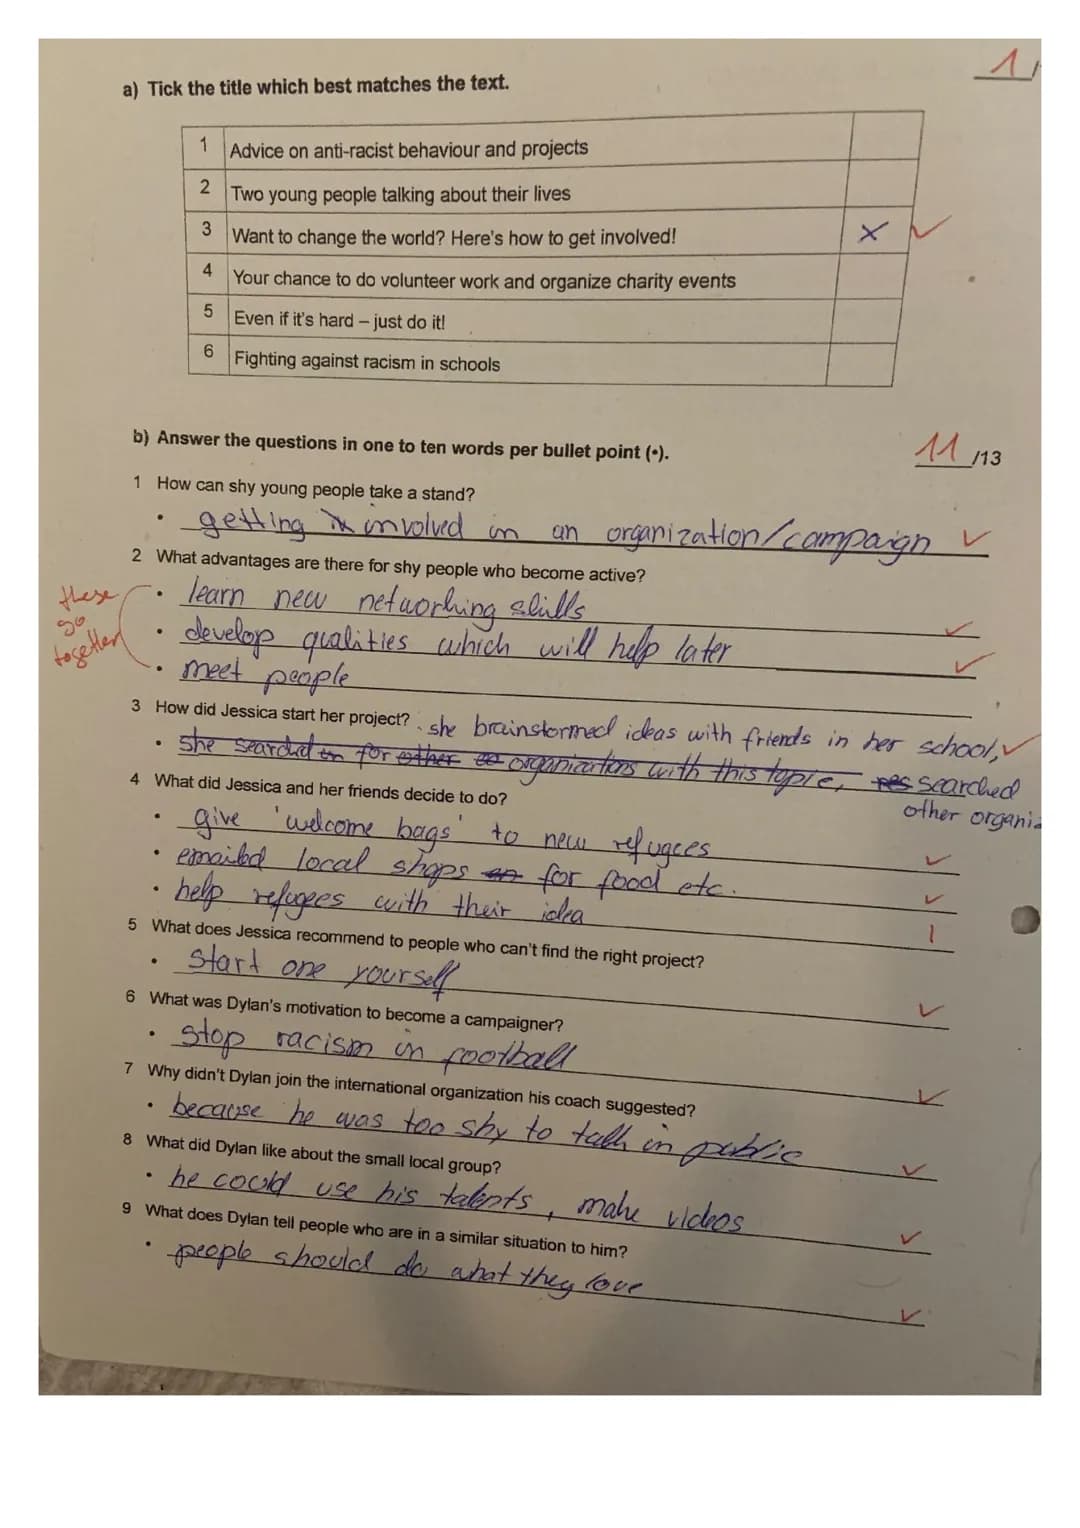 1/
a) Tick the title which best matches the text.
1 Advice on anti-racist behaviour and projects
2 Two young people talking about their lives
3 Want to change the world? Here's how to get involved! x ✓
4 Your chance to do volunteer work and organize charity events
5 Even if it's hard – just do it!
6 Fighting against racism in schools
b) Answer the questions in one to ten words per bullet point (•). 11/13
1 How can shy young people take a stand?
• getting involved in an organization/campaign ✓
2 What advantages are there for shy people who become active?
• learn new networking skills ✓
these go together
• develop qualities which will help later ✓
• meet people
3 How did Jessica start her project? she brainstormed ideas with friends in her school, ✓
• she searched for other organizations with this topic, searched
other organiz
4 What did Jessica and her friends decide to do?
• give 'welcome bags' to new refugees ✓
• emailed local shops for food etc. ✓
• help refugees with their idea |
5 What does Jessica recommend to people who can't find the right project?
• start one yourself ✓
6 What was Dylan's motivation to become a campaigner?
• stop racism in football ✓
7 Why didn't Dylan join the international organization his coach suggested?
• because he was too shy to talk in public ✓
8 What did Dylan like about the small local group?
• he could use his talents, make videos ✓
9 What does Dylan tell people who are in a similar situation to him?
• people should do what they love ✓